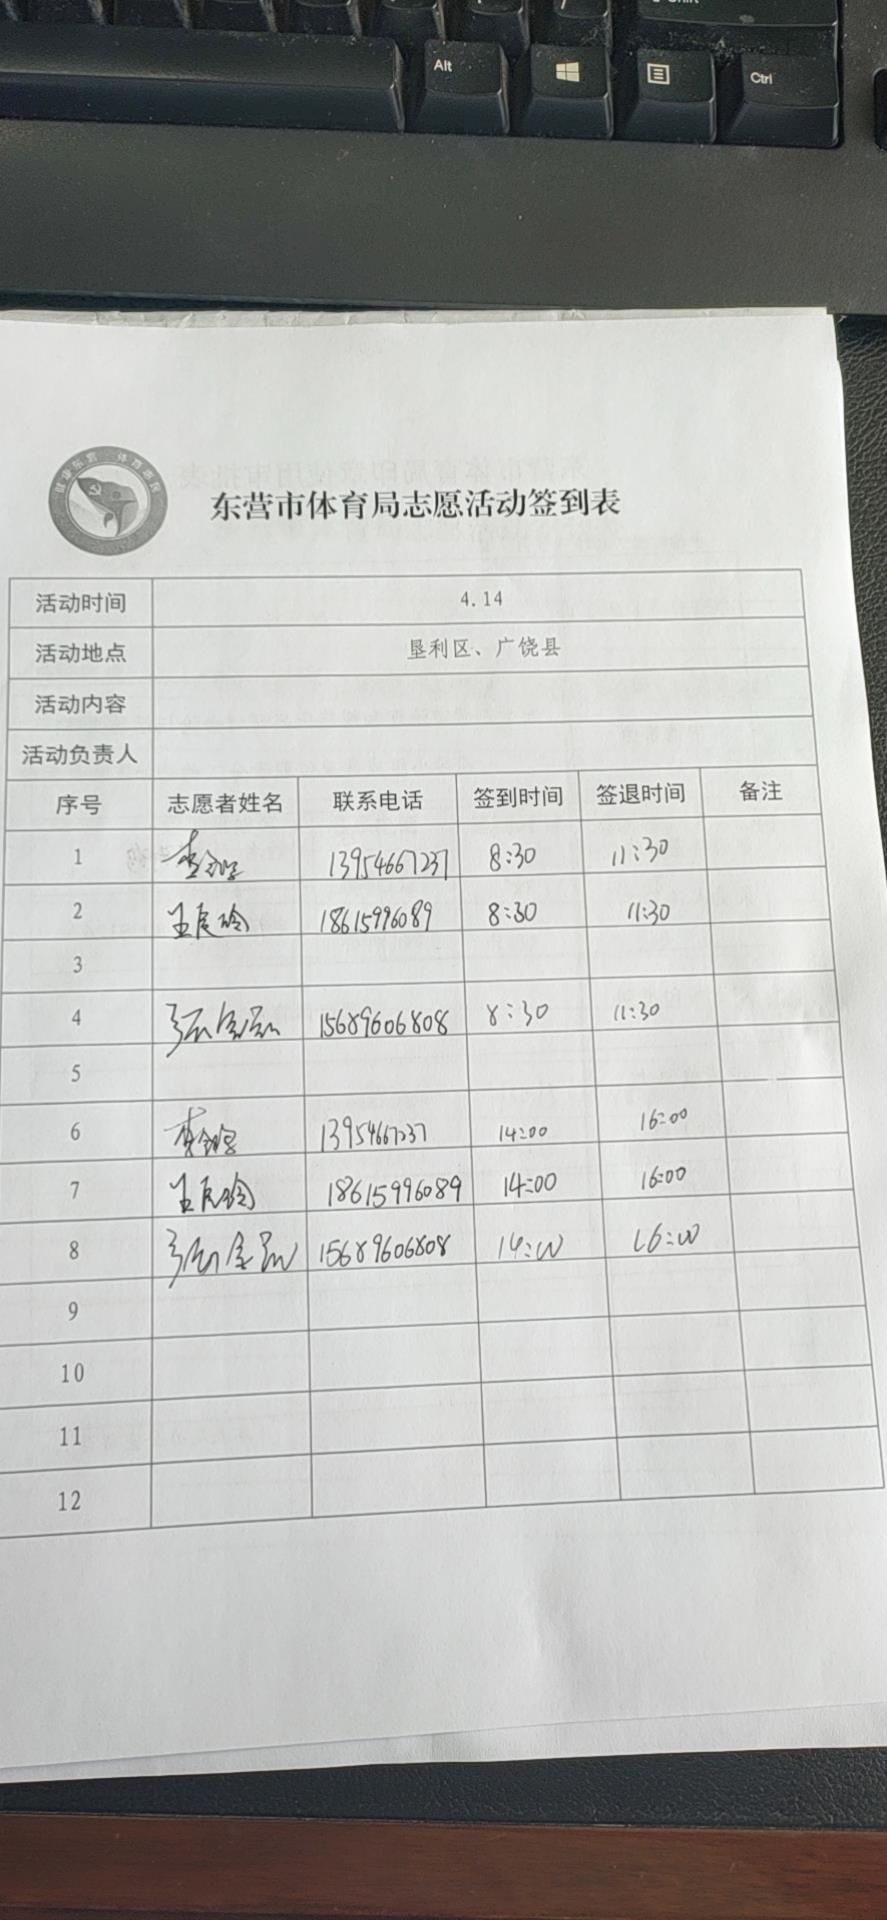 Alt
Ctrl
东营市体育局志愿活动签到表
活动时间 4.14
活动地点 垦利区、广饶县
活动内容
活动负责人
序号 志愿者姓名 联系电话 签到时间 签退时间 备注
1 13954667237 8:30 11:30
2 王 玲 18615996089 8:30 11:30
3
4 张 15689606808 8:30 11:30
5
6 李 13954667237 14:00 16:00
7 王 玲 18615996089 14:00 16:00
8 张 15689606808 14:00 16:00
9
10
11
12